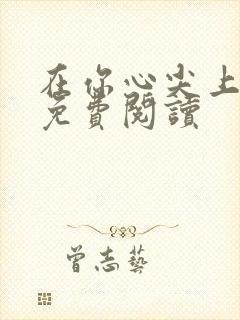 在你心尖上
免費閱讀
曾志藝